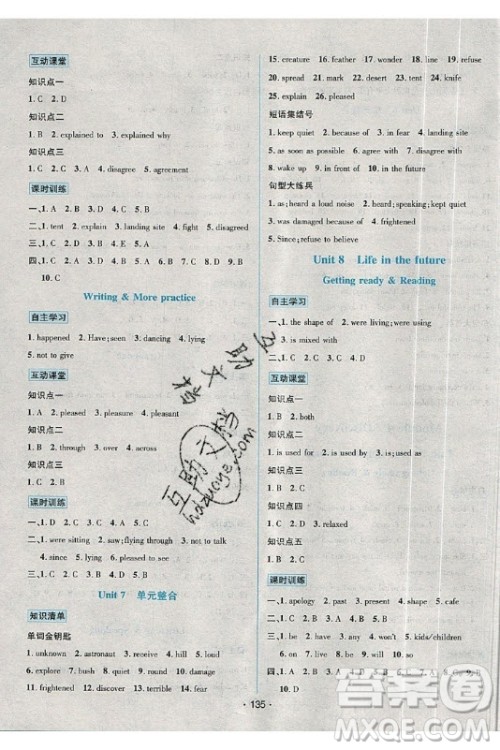 互动课堂
知识点一
1. C  2. D
知识点二
1. B  2. explained to  3. explained why
知识点三
1. C  2. D  3. A  4. disagree  5. agreement
课时训练
一、1. A  2. B  3. D  4. C  5. B
二、1. tent  2. explain  3. landing site  4. fight  5. disagreed
四、1. B  2. D  3. C  4. A  5. B  6. B  7. D  8. A  9. A
10. C
Writing & More practice
自主学习
1. happened  2. Have; seen  3. dancing  4. lying
5. not to give
互动课堂
知识点一
1. A  2. please  3. pleasure  4. pleasant
知识点二
1. D
知识点三
1. A  2. B
课时训练
一、1. C  2. B  3. A
二、1. sitting  2. saw  3. flying through  4. not to talk
5. was lying
四、1. A  2. D  3. B  4. C  5. D
Unit 7 单元整合
知识清单
单词金钥匙
1. unknown  2. astronaut  3. ourselves
7. explore  8. bush  9. quiet  10. damage
11. fear  12. discover  13. terrible
15. creature  16. feather  17. wing  18. lie  19. refuse
20. spread  21. mark  22. tent  24. knife
25. explain  26. pleased
短语集结号
1. keep quiet  2. because of  3. in fear  4. landing site
5. as soon as possible  6. agree with  7. be afraid of
8. wake up  9. in fear of  10. in the future
句型大练兵
1. as; heard a loud noise  2. heard; speaking; kept quiet
3. was damaged because of  4. frightened
5. Since; refuse to believe
Unit 8 Life in the future
Getting ready & Reading
自主学习
一、1. the shape of  2. were living; were using
3. is mixed with
二、1. A  2. B  3. C  4. D
互动课堂
知识点一
1. B  2. both
知识点二
1. is used for  2. is used by  3. is used as
知识点三
1. B  2. C
知识点四
1. A
知识点五
1. D
课时训练
一、1. apology  2. past  3. powder  4. shape  5. cafe
二、1. C  2. A  3. B  4. C
三、1. no  2. money  3. won't  4. kids/children
5. of  6. living  7. be  8. any  10. so
四、1. C  2. C  3. D  4. A  5. A  6. B  8. C
10. D
互助文档
hdzuoye.com
· 135 ·
答案圈
MXQE.COM